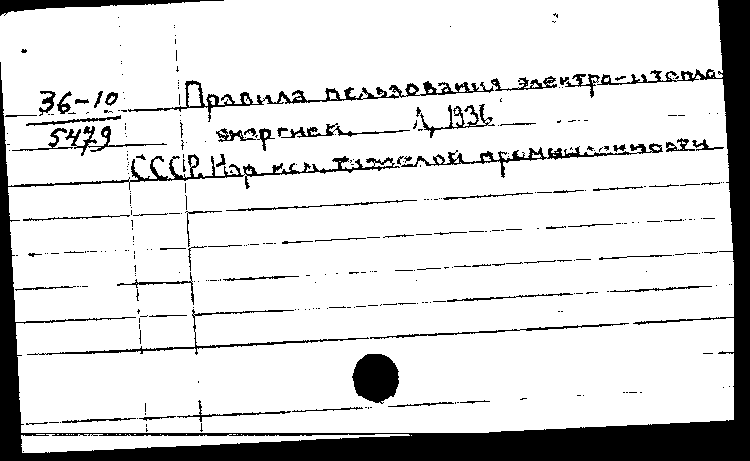 36-10
5479
Правила пользования электро- и тепло-
энергией. Л, 1936
СССР. Нар ком. тяжелой промышленности